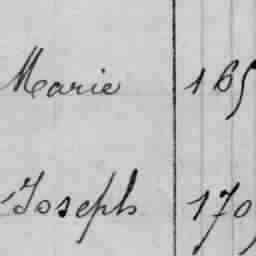 Marie 165
Joseph 170